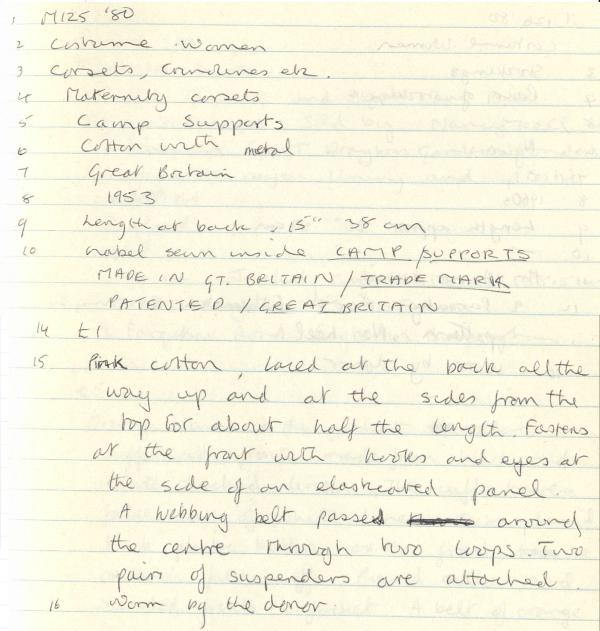 1 M125 '80
2 Costume Women
3 Corsets, Crinolines etc.
4 Maternity corsets
5 Camp Supports
6 Cotton with metal
7 Great Britain
8 1953
9 Length at back, 15" 38 cm
10 Label sewn inside CAMP/SUPPORTS
MADE IN GT. BRITAIN / TRADE MARK
PATENTED / GREAT BRITAIN
14 E1
15 Pink cotton, laced at the back all the
way up and at the sides from the
top for about half the length. Fastens
at the front with hooks and eyes at
the side of an elasticated panel.
A webbing belt passed around
the centre through two loops. Two
pairs of suspenders are attached.
16 Worn by the donor.